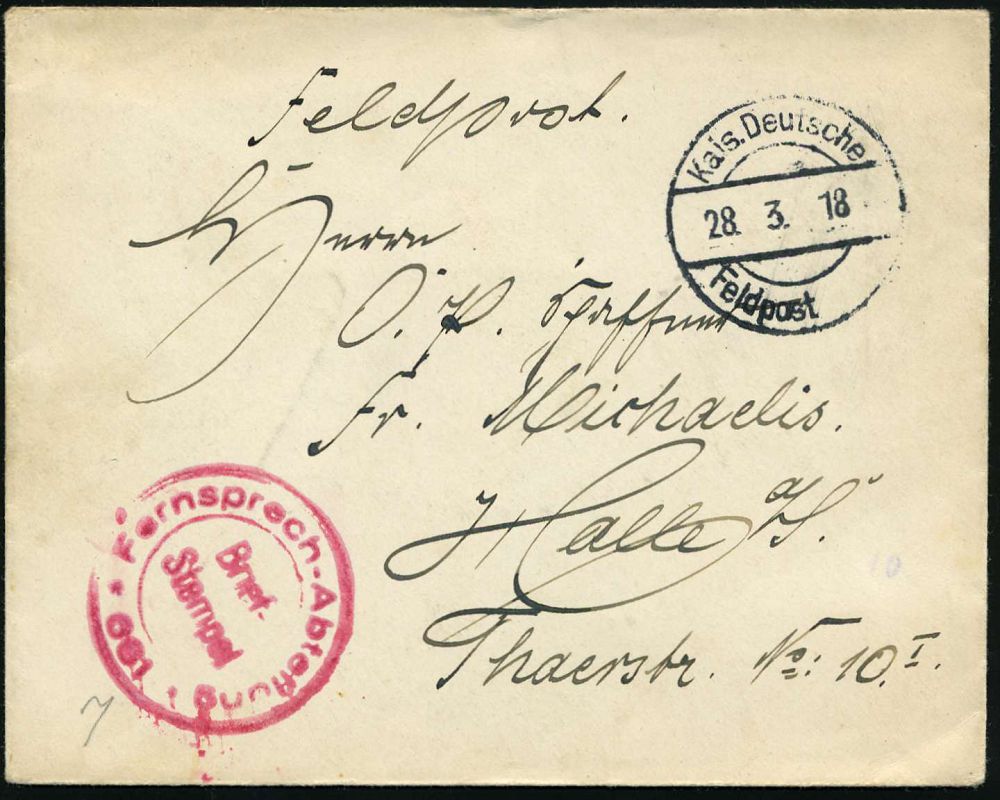 Feldpost.
Kais. Deutsche
28. 3. 18
Feldpost
Herrn
O. P. Schaffner
Fr. Michaelis.
Halle a/S.
Thaerstr. No: 10.I.
Fernsprech-Abteilung
Brief-
Stempel